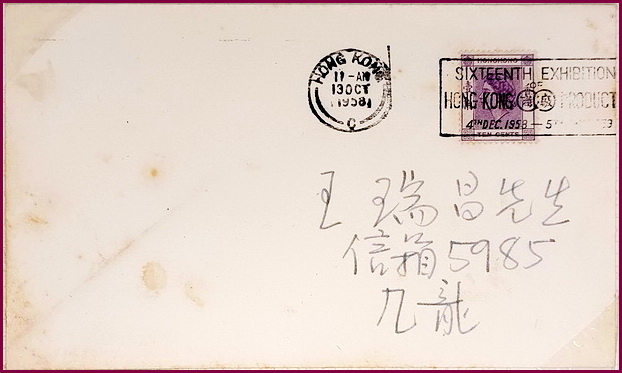 HONG KONG
11-AM
13 OCT
1958
C
HONG KONG
TEN CENTS
SIXTEENTH EXHIBITION
HONG KONG PRODUCT
4TH DEC. 1958 — 5
王瑞昌先生
信箱5985
九龍